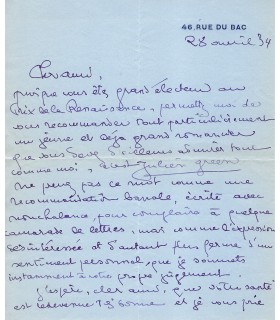 46, RUE DU BAC
28 avril 34
Cher ami,
puisque vous êtes grand électeur au
Prix de la Renaissance, permettez moi de
vous recommander tout particulièrement
un jeune et déjà grand romancier
que vous devez d'ailleurs admirer tout
comme moi, c'est Julien Green
ne prenez pas ce mot comme une
recommandation banale, écrite avec
nonchalance, pour complaire à quelque
camarade de lettres, mais comme l'expression
désintéressée et d'autant plus ferme d'un
sentiment personnel, que je soumets
instamment à votre propre jugement.
j'espère, cher ami, que votre santé
est redevenue très bonne et je vous prie